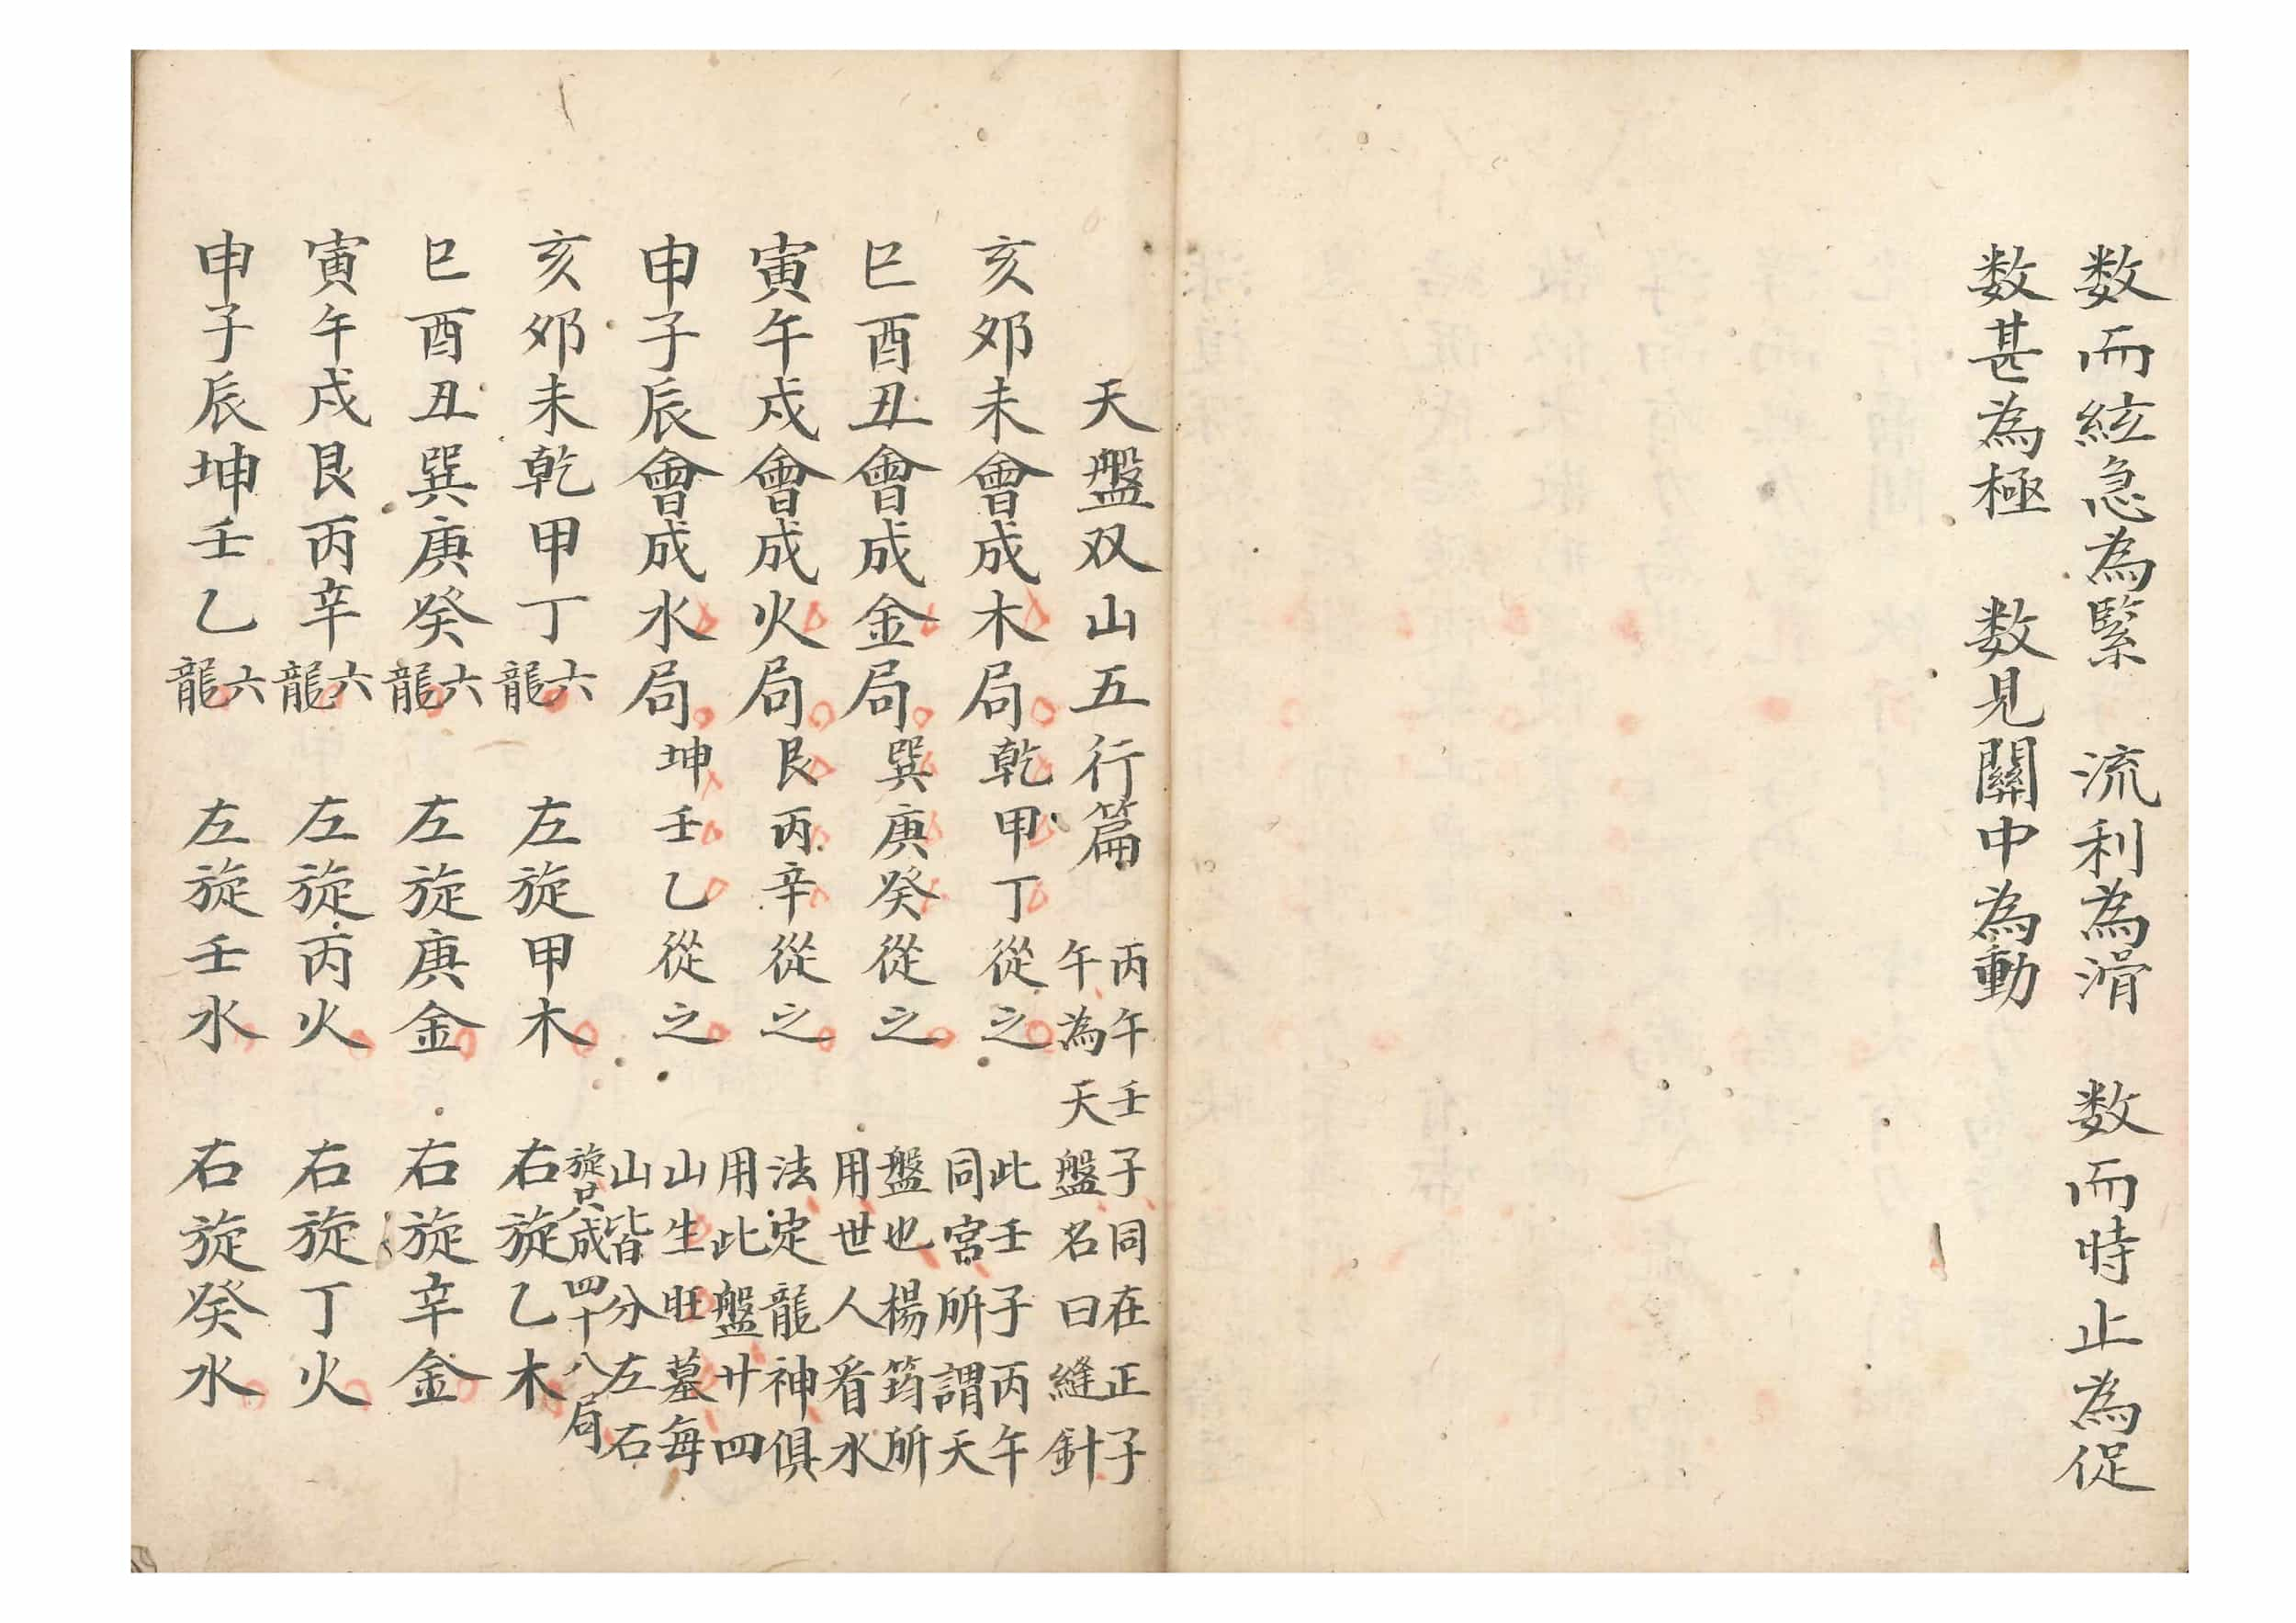 数而絃急為緊　流利為滑　数而時止為促
数甚為極　数見關中為動
天盤双山五行篇
丙午壬子同在正子
午為天盤名曰縫針
亥夘未會成木局乾甲丁從之
此壬子丙午
同宮所謂天
巳酉丑會成金局巽庚癸從之
盤也楊筠所
用世人看水
寅午戌會成火局艮丙辛從之
法定龍神俱
用此盤廿四
申子辰會成水局坤壬乙從之
山生旺墓每
山皆分左石
旋只成四十八局
亥夘未乾甲丁六龍　左旋甲木　右旋乙木
巳酉丑巽庚癸六龍　左旋庚金　右旋辛金
寅午戌艮丙辛六龍　左旋丙火　右旋丁火
申子辰坤壬乙六龍　左旋壬水　右旋癸水